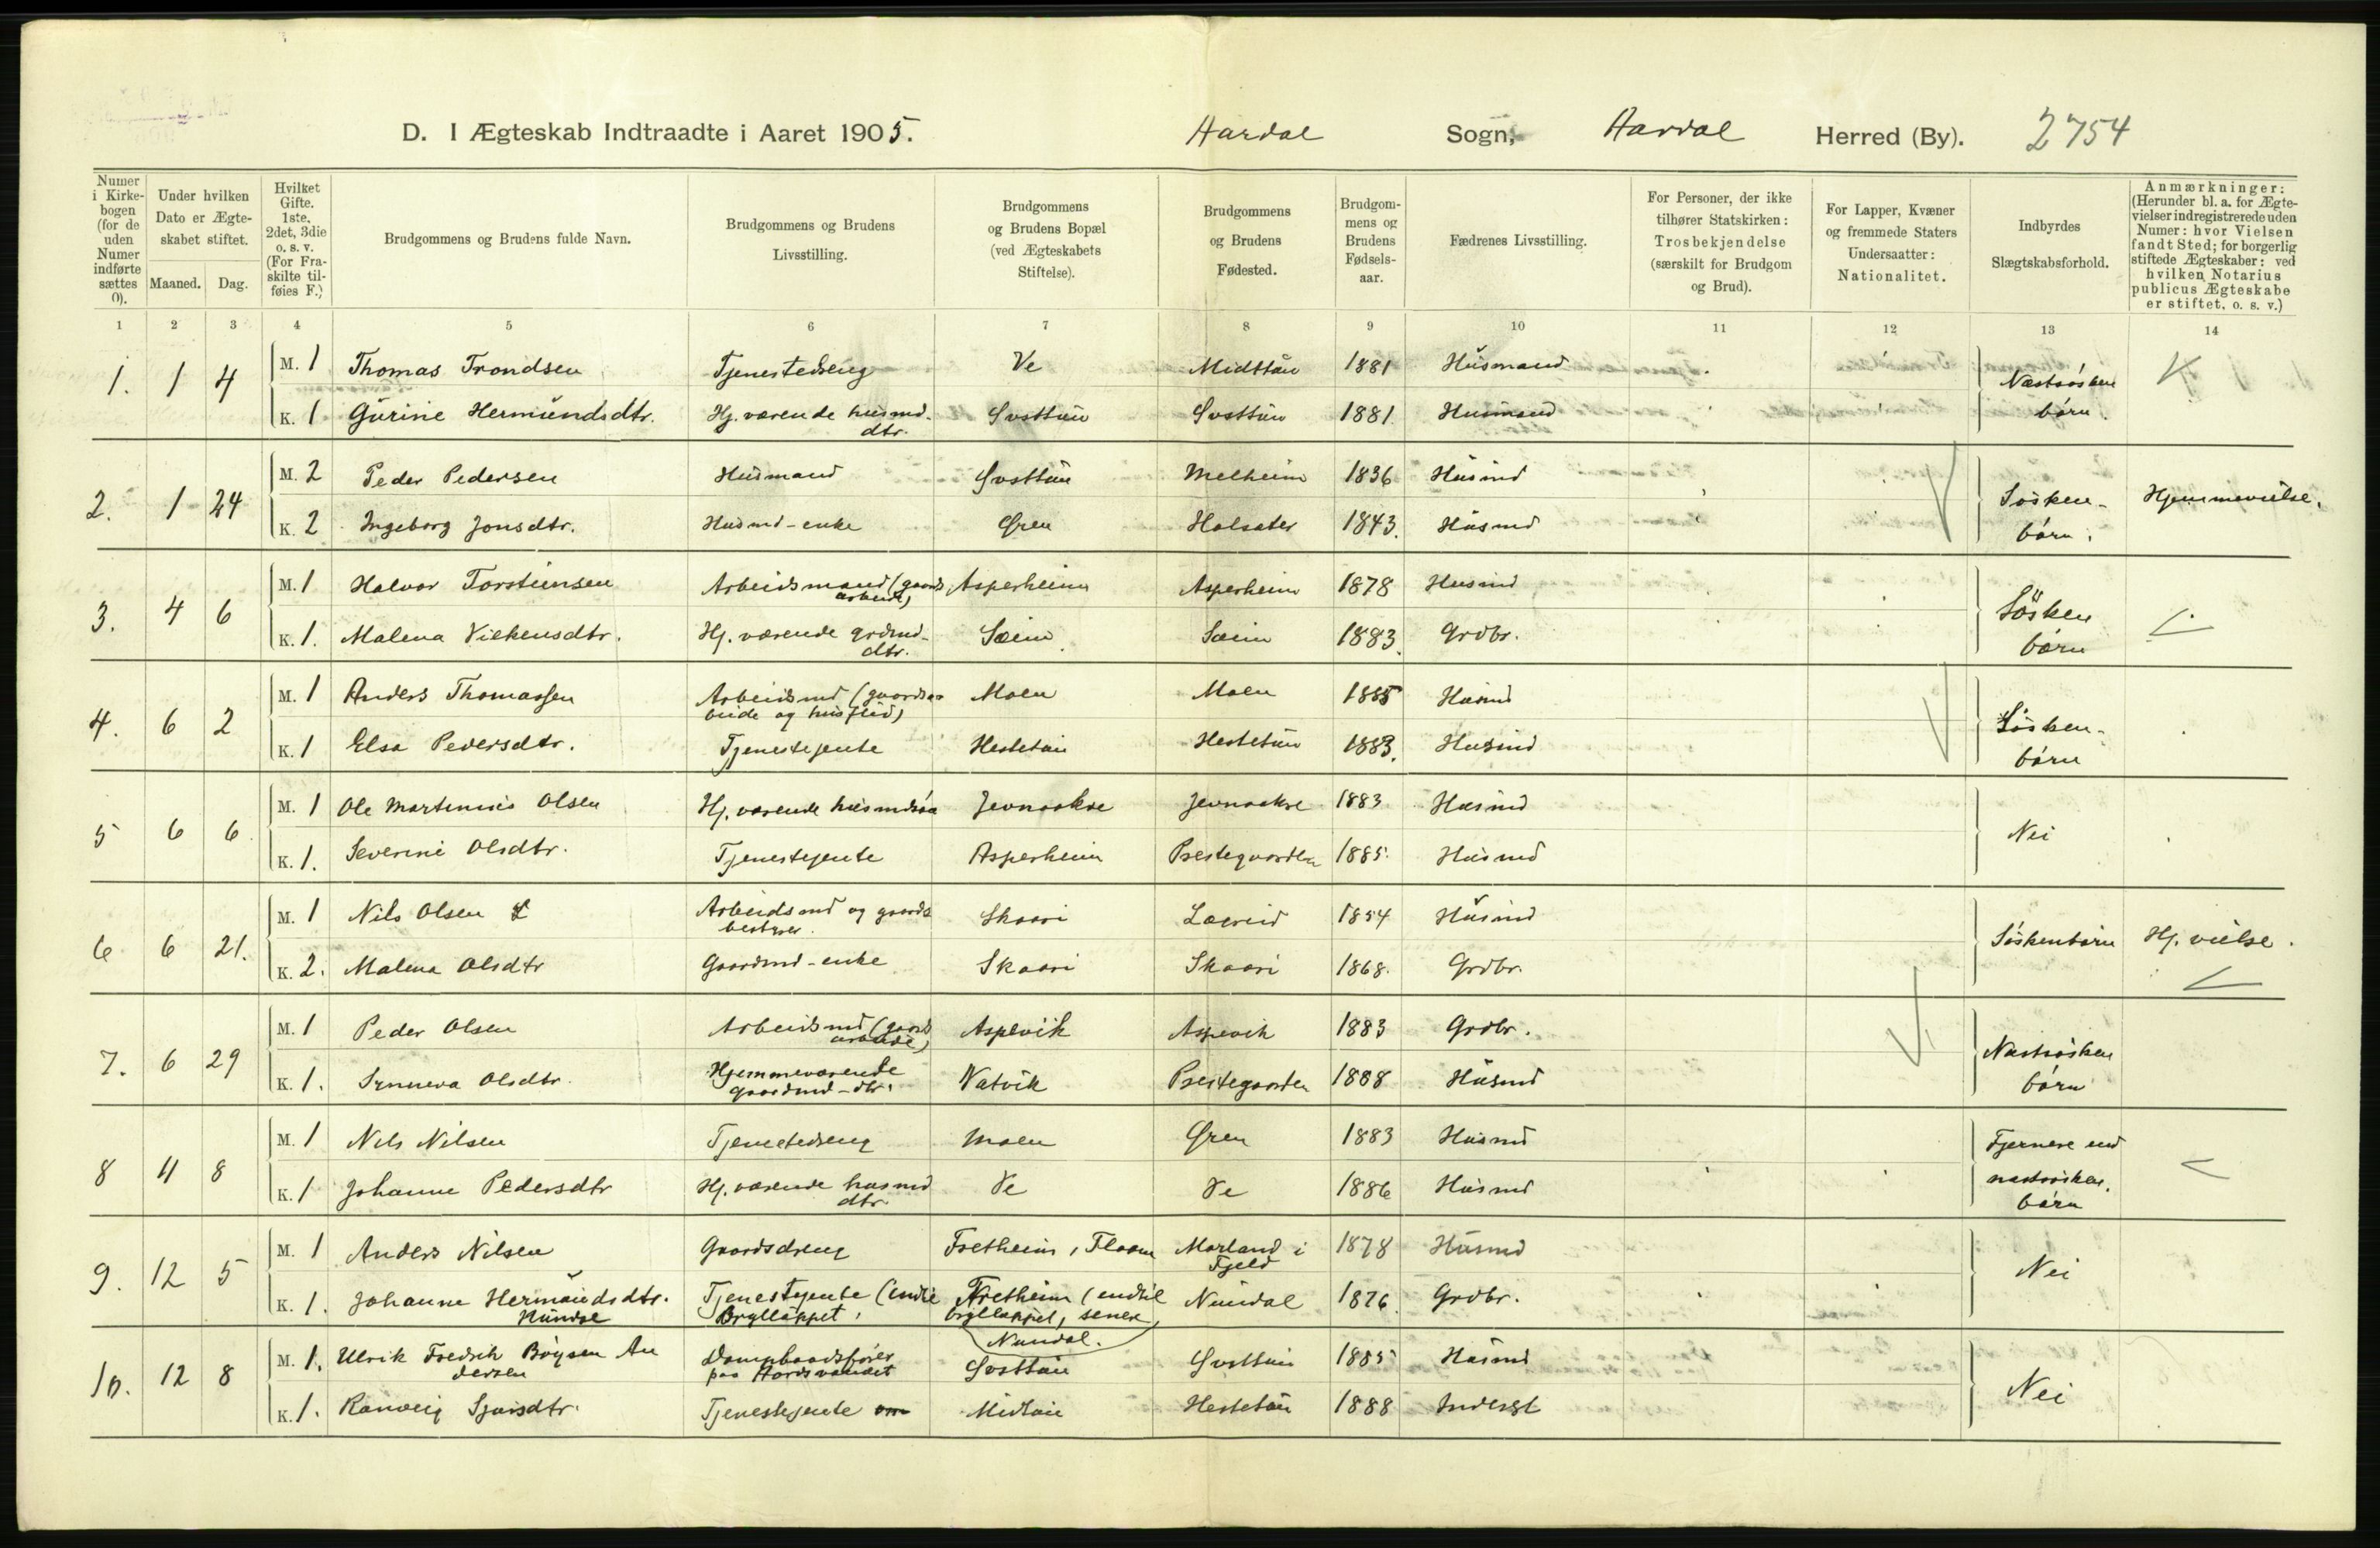 D. I Ægteskab Indtraadte i Aaret 1905. Aardal Sogn, Aardal Herred (By). 2754
Numer i Kirkebogen (for de uden Numer indførte sættes 0).
Under hvilken Dato er Ægteskabet stiftet.
Maaned. Dag.
Hvilket Gifte. 1ste, 2det, 3die o. s. v. (For Fraskilte tilføies F.)
Brudgommens og Brudens fulde Navn.
Brudgommens og Brudens Livsstilling.
Brudgommens og Brudens Bopæl (ved Ægteskabets Stiftelse).
Brudgommens og Brudens Fødested.
Brudgommens og Brudens Fødselsaar.
Fædrenes Livsstilling.
For Personer, der ikke tilhører Statskirken: Trosbekjendelse (særskilt for Brudgom og Brud).
For Lapper, Kvæner og fremmede Staters Undersaatter: Nationalitet.
Indbyrdes Slægtskabsforhold.
Anmærkninger: (Herunder bl. a. for Ægtevielser indregistrerede uden Numer: hvor Vielsen fandt Sted; for borgerlig stiftede Ægteskaber: ved hvilken Notarius publicus Ægteskabe er stiftet, o. s. v.)
1 2 3 4 5 6 7 8 9 10 11 12 13 14
1. 1 4 M. 1 Thomas Trondsen Tjenestedreng Ve Midttun 1881 Husmand Næstsøskenbørn.
K. 1 Gurine Hermundsdtr. Hj. værende husmd.dtr. Svalttun 1881 Husmand
2. 1 24 M. 2 Peder Pedersen Husmand Melheim 1836 Husmd Søskenbørn. Hjemmevielse.
K. 2 Ingeborg Jonsdtr. Husmd-enke Øren Holsæter 1843. Husmd
3. 4 6 M. 1 Halvor Torsteinsen Arbeidsmand (gaardsarbeide) Asperheim Asperheim 1878 Husmd Søskenbørn
K. 1. Malena Viekensdtr. Hj. værende grdmd-dtr. Sæim Sæim 1883. Grdbr.
4. 6 2 M. 1 Anders Thomassen Arbeidsmd (gaardsarbeide og husflid) Moen Moen 1885 Husmd Søskenbørn
K. 1 Elsa Pedersdtr. Tjenestejente Hestetun Hestetun 1883. Husmd
5 6 6 M. 1 Ole Martinius Olsen Hj. værende husmdsøn Jevnaakre Jevnaakre 1883 Husmd Nei
K. 1. Severine Olsdtr. Tjenestejente Asperheim Prestegaarden 1885. Husmd
6 6 21. M. 1 Nils Olsen L Arbeidsmd og gaardsbestyrer. Skaari Lægreid 1854 Husmd Søskenbørn Hj. vielse.
K. 2. Malena Olsdtr Gaardmd-enke Skaari Skaari 1868. Grdbr.
7. 6 29 M. 1 Peder Olsen Arbeidsmd (gaardsarbeide) Aspevik Aspevik 1883 Grdbr. Næstsøskenbørn
K. 1. Synneva Olsdtr. Hjemmeværende gaardmd-dtr. Natvik Prestegaarden 1888 Husmd
8 4 8 M. 1 Nils Nilsen Tjenestedreng Moen Øren 1883 Husmd Fjernere end næstsøskenbørn
K. 1 Johanne Pedersdtr Hj. værende husmd dtr. Ve Ve 1886 Husmd
9. 12 5 M. 1 Anders Nilsen Gaardsdreng Fretheim, Flaam Morland i Fjeld 1878 Husmd Nei
K. 1. Johanne Hermundsdtr. Nundal Tjenestejente (indtil Bryllupet. Fretheim (indtil bryllupet, senere Nundal. Nundal 1876 Grdbr.
10. 12 8 M. 1. Ulrik Fredrik Böysen Andersen Dampbaadsfører paa Aardsvandet 1885 Husmd Nei
K. 1. Ranveig Sjursdtr. Tjenestejente Midtun Hestetun 1888 Inderst